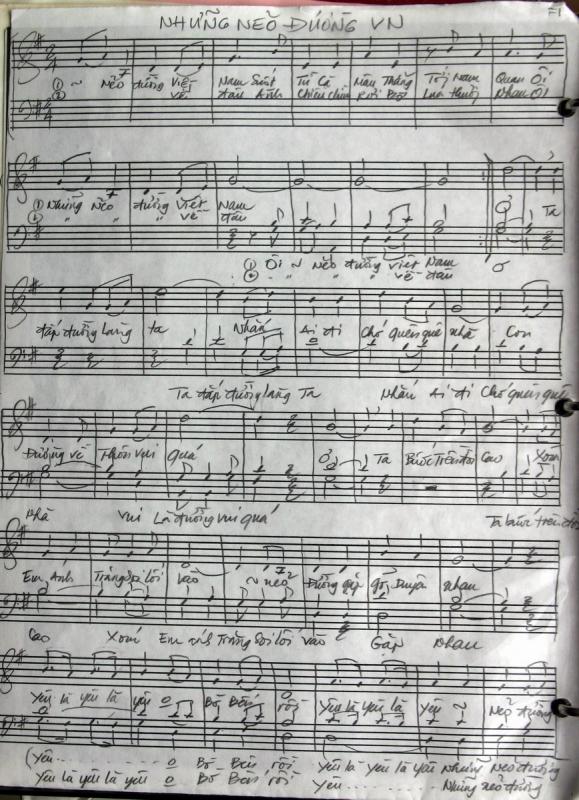 NHỮNG NẺO ĐƯỜNG VN
① ~ Nẻo đường Việt Nam Suốt Từ Cà Mâu Thẳng Tới Nam Quan Ôi
② về đâu Anh Chiều chia Lưa thưa Nhau Ơi
① Những Nẻo đường Việt Nam Ơ Ta
② " " " về đâu
① Ôi ~ nẻo đường Việt Nam Ơ
② " " " " về đâu
đắp đường làng ta Nhắn Ai đi Chớ quên quê nhà Con
Ta đắp đường làng Ta Nhắn Ai đi Chớ quên quê
Đường về thôn vui quá Ơ Ta Bước trên đồi Cao Xóm
Nhà vui Là đường vui quá Ta bước trên đồi
Em Ánh Trăng Soi lối vào ~ nẻo Đường gặp gỡ Duyên nhau
Cao Xóm Em ánh Trăng Soi lối vào Gặp Nhau
Yêu là yêu là yêu o Bờ Bến rồi Yêu là Yêu là Yêu ~ Nẻo đường
(Yêu ........ o Bờ Bến rồi Yêu là Yêu là Yêu Những Nẻo đường
Yêu là yêu là yêu o Bờ Bến rồi Yêu ........ Những nẻo đường